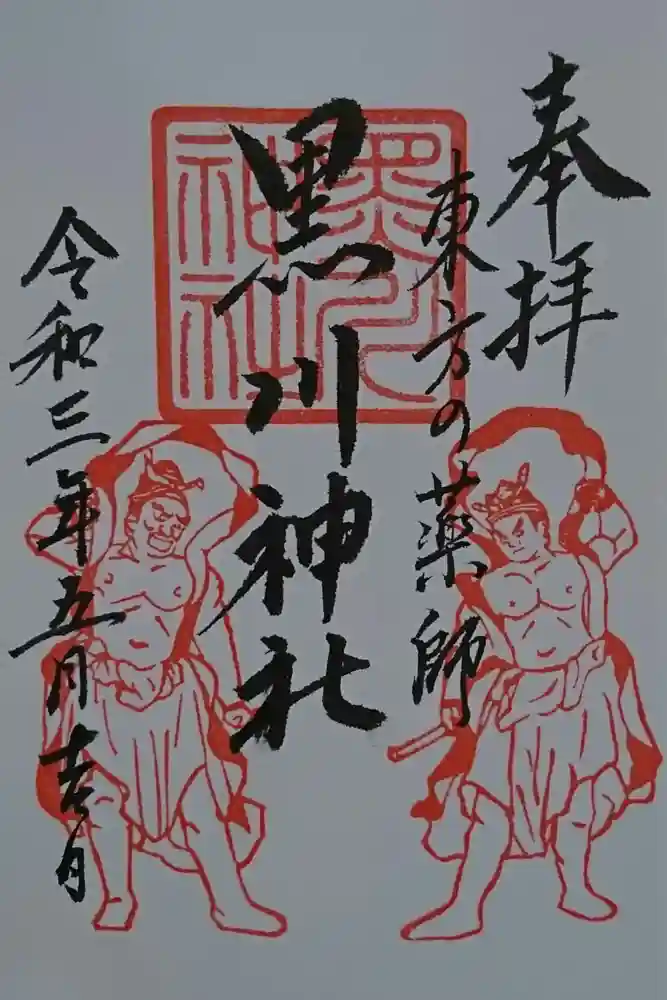 奉拝
東方の薬師
黒川神社
黒川神社
令和三年五月吉日